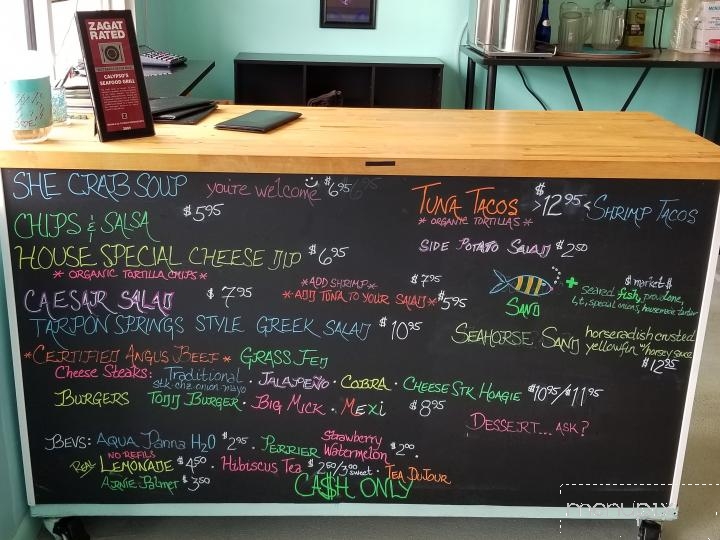 ZAGAT
RATED
CALYPSO'S
SEAFOOD GRILL
SHE CRAB SOUP you're welcome $6.95
CHIPS & SALSA $5.95
HOUSE SPECIAL CHEESE DIP $6.95
* ORGANIC TORTILLA CHIPS *
CAESAR SALAD $7.95
*ADD SHRIMP* $7.95
*ADD TUNA TO YOUR SALAD* $5.95
TARPON SPRINGS STYLE GREEK SALAD $10.95
*CERTIFIED ANGUS BEEF* GRASS FED
Cheese Steaks: Traditional · JALAPEÑO · COBRA · CHEESE STK HOAGIE $10.95/$11.95
stk-chz-onion-mayo
BURGERS TODD BURGER · BIG MICK · MEXI $8.95
TUNA TACOS >$12.95< SHRIMP TACOS
* ORGANIC TORTILLAS *
SIDE POTATO SALAD $2.50
SAND
$ market $
seared fish, provolone,
l,t, special onions, housemade tartar
SEAHORSE SAND horseradish crusted
yellowfin w/horsey sauce
$12.95
DESSERT... ASK?
BEVS: AQUA PANNA H2O $2.95 · PERRIER Strawberry
Watermelon $2.00 ·
NO REFILS
Real LEMONADE $4.50 · Hibiscus Tea $2.50/3.00 sweet · TEA DUJOUR
Arnie Palmer $3.50
CA$H ONLY
menupix